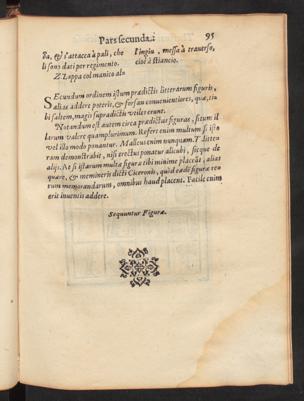 Pars secunda. 95
da, & s'attacca à pali, che
li sono dati per regimento.
Z. Zappa col manico al
l'ingiu, messa à trauerso,
cioè à sciancio.
Secundum ordinem istum prædictis litterarum figuris,
alias addere poteris, & forsan conuenientiores, quæ, ti
bi saltem, magis supradictis velle erunt.
Notandum est autem circa prædictas figuras, situm il
larum valere quamplurimum. Refert enim multum si isto
vel illo modo ponantur. Malleus enim nunquam T littera
ram demonstrabit, nisi erectus ponatur alicubi, sicque de
alijs. At si istarum multæ figuræ tibi minime placent, alias
quære, & memineris dicti Ciceronis, quòd eædem figuræ
rerum memorandarum, omnibus haud placent. Facile enim
erit inuentis addere.
Sequuntur Figuræ.